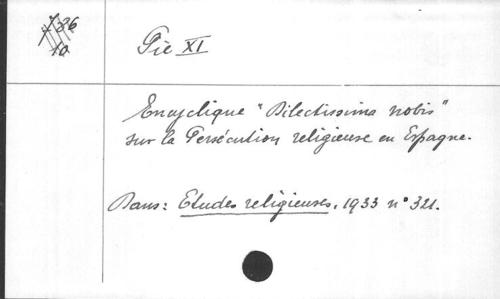 Pie XI
Encyclique "Dilectissima nobis"
sur la Persécution religieuse en Espagne.
Dans: Etudes religieuses, 1933 n° 321.